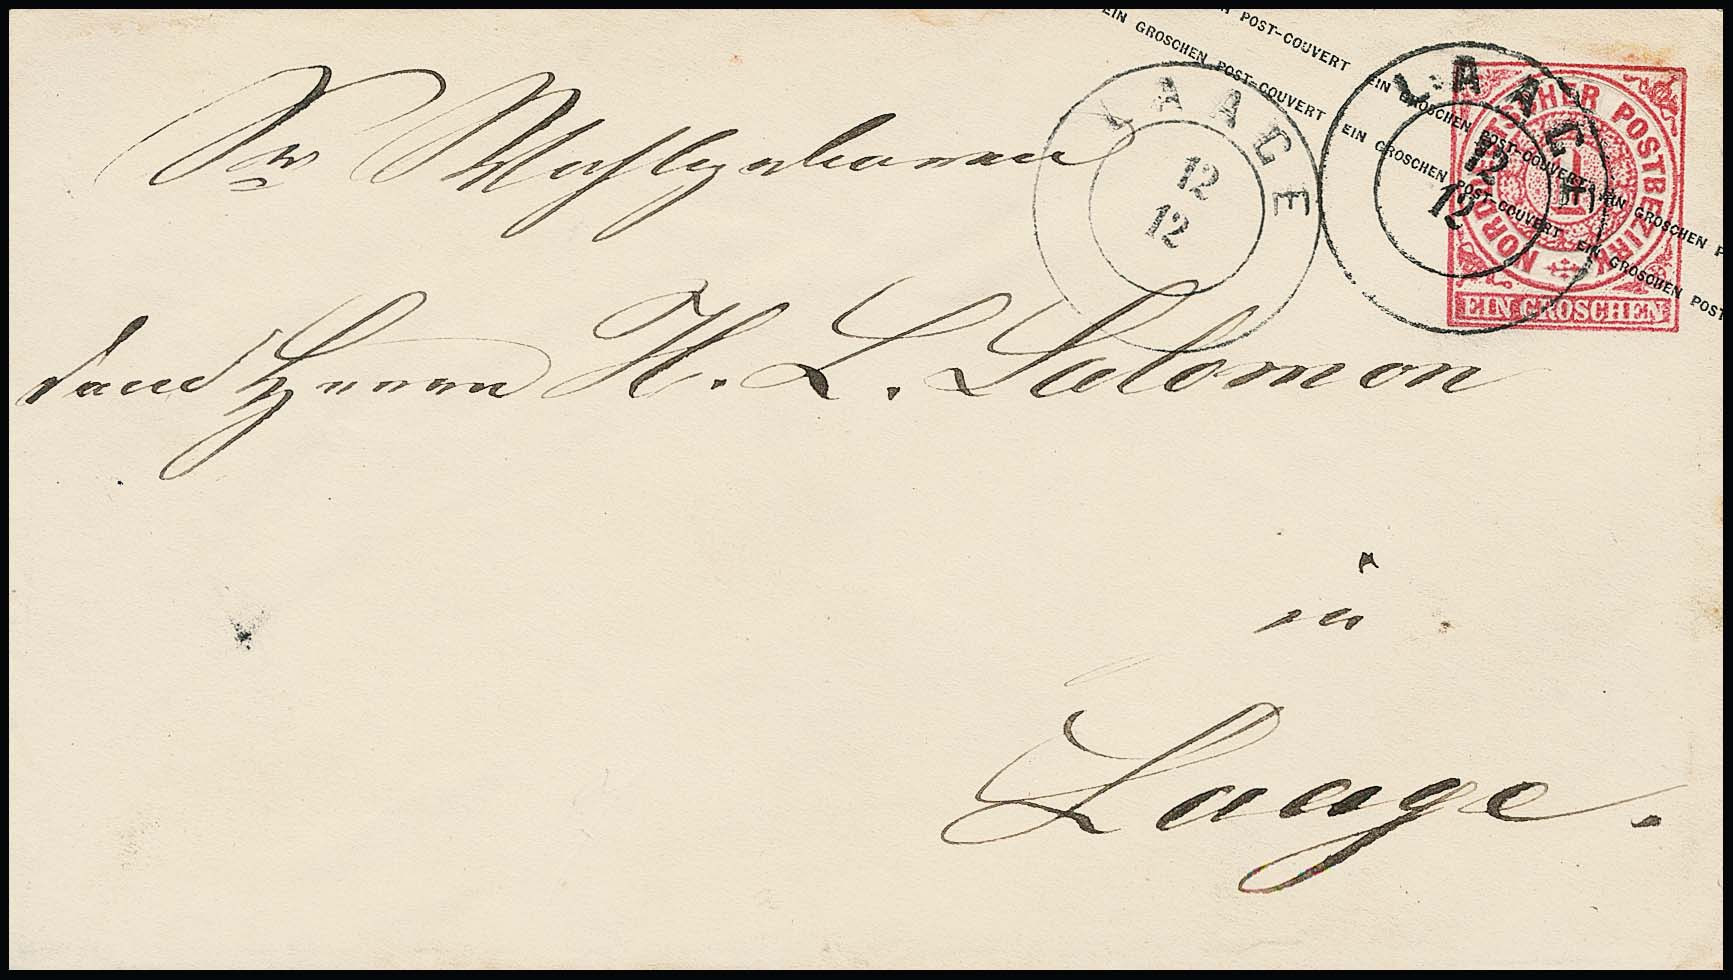 EIN GROSCHEN POST-COUVERT EIN GROSCHEN POST-COUVERT EIN GROSCHEN
EIN GROSCHEN POST-COUVERT EIN GROSCHEN POST-COUVERT EIN GROSCHEN POST
LAAGE
12
12
LAAGE
12
12
NORDDEUTSCHER POSTBEZIRK
1
EIN GROSCHEN
Sr Wohlgeboren
dem Herrn H. L. Salomon
in
Laage.